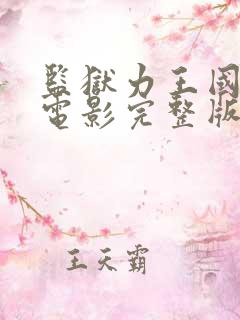 監獄力王國
電影完整版
王天霸